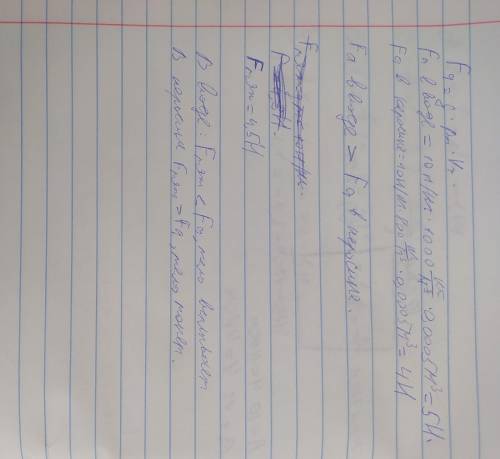 Fа = g · ρж · Vт.
Fа в воде = 10 н/кг · 1000 кг/м³ · 0,0005 м³ = 5 Н.
Fа в керосине = 10 Н/кг · 800 кг/м³ · 0,0005 м³ = 4 Н
Fа в воде > Fа в керосине.
Fтяж = 4,5 Н
В воде: Fтяж < Fа, тело всплывает
В керосине Fтяж > Fа, тело тонет.